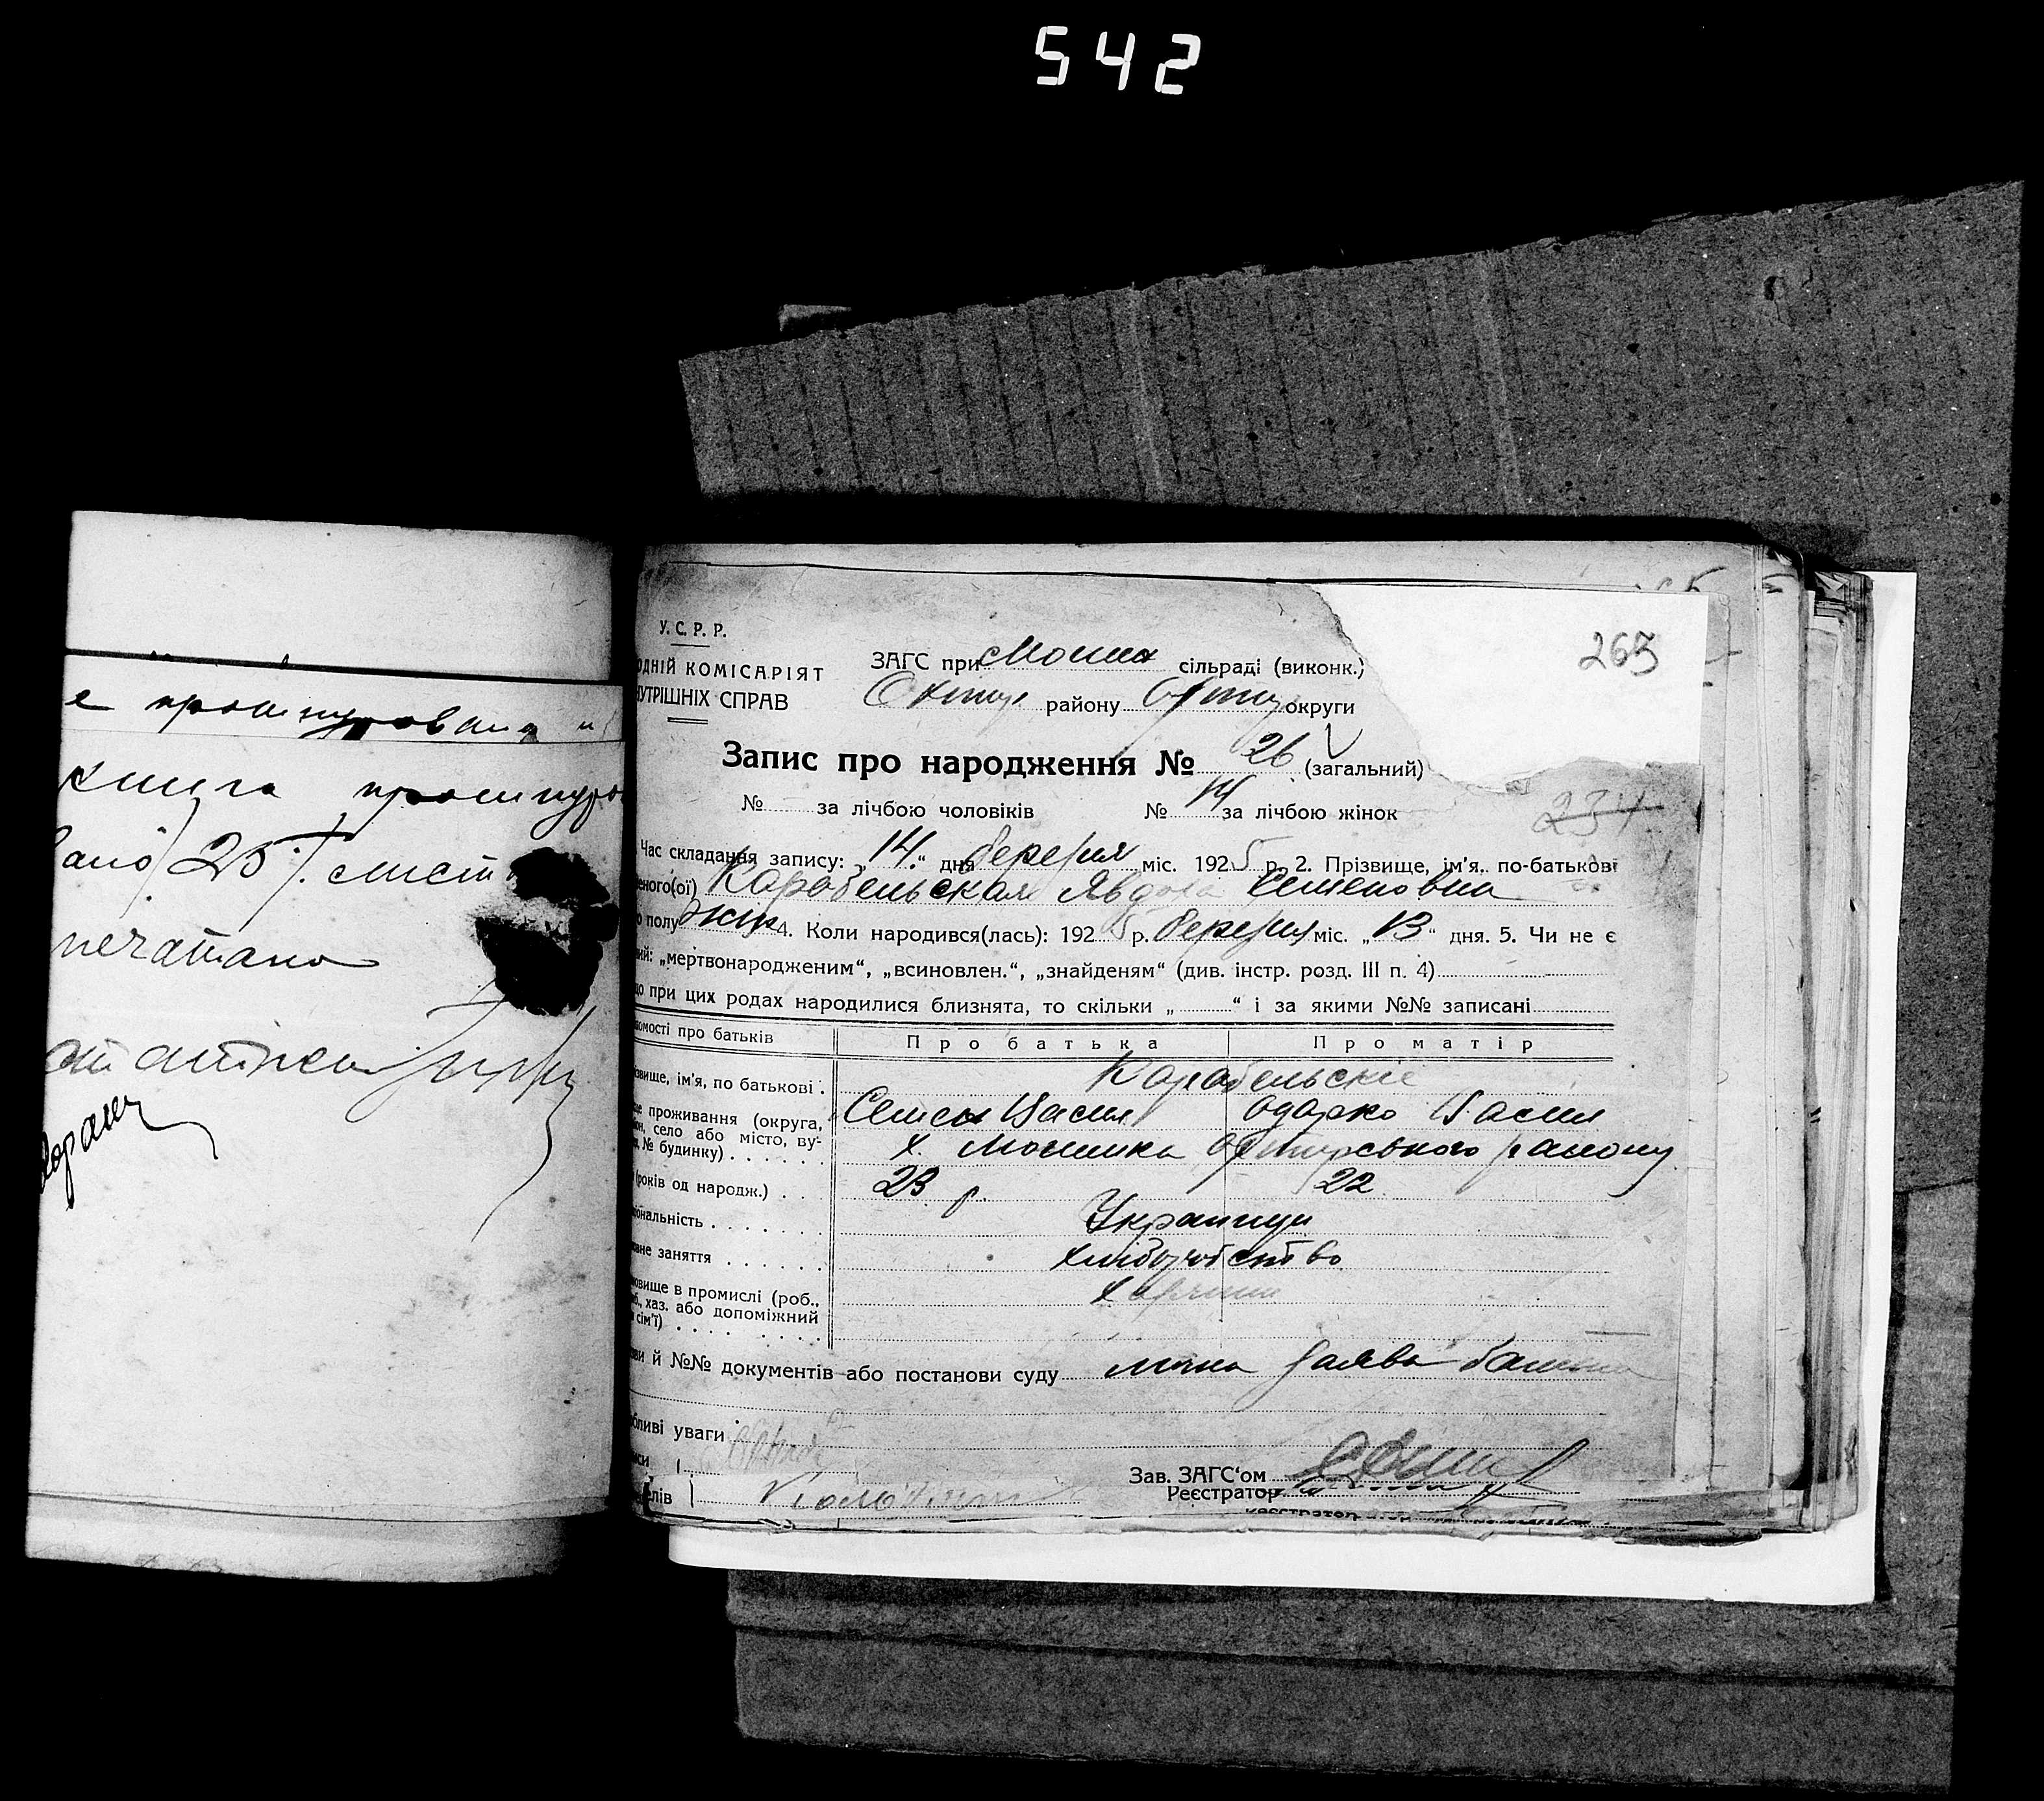 542
е прошнурована и
книга прошнуро
вано /25/. лист
печатано
У. С. Р. Р.
ОДНІЙ КОМІСАРІЯТ
НУТРІШНІХ СПРАВ
ЗАГС при сільраді (виконк.)
Охтир району Охтир округи
265
Запис про народження № 26 (загальний)
№ за лічбою чоловіків № 14 за лічбою жінок
234
Час складання запису: „14“ дня березня міс. 1925 р. 2. Прізвище, ім’я, по-батькові
еного(ої) Карабельская Явдоха Семеновна
о полу жін 4. Коли народився(лась): 1925 р. березня міс. „13“ дня. 5. Чи не є
ний: „мертвонародженим“, „всиновлен.“, „знайденям“ (див. інстр. розд. III п. 4)
що при цих родах народилися близнята, то скільки „ “ і за якими №№ записані
омості про батьків Про батька Про матір
Карабельскіе
звище, ім’я, по батькові
Семен Васил Одарко Васил
це проживання (округа,
он, село або місто, ву-
№ будинку)
х. Мошинка Охтирського району
(років од народж.) 23 р. 22
ціональність Украинци
овне заняття хлиборобство
новище в промислі (роб.,
б., хаз. або допоміжний
сім’ї)
ви й №№ документів або постанови суду заява батька
бливі уваги
иси
телів
Зав. ЗАГС‘ом
Реєстратор
Реєстратор